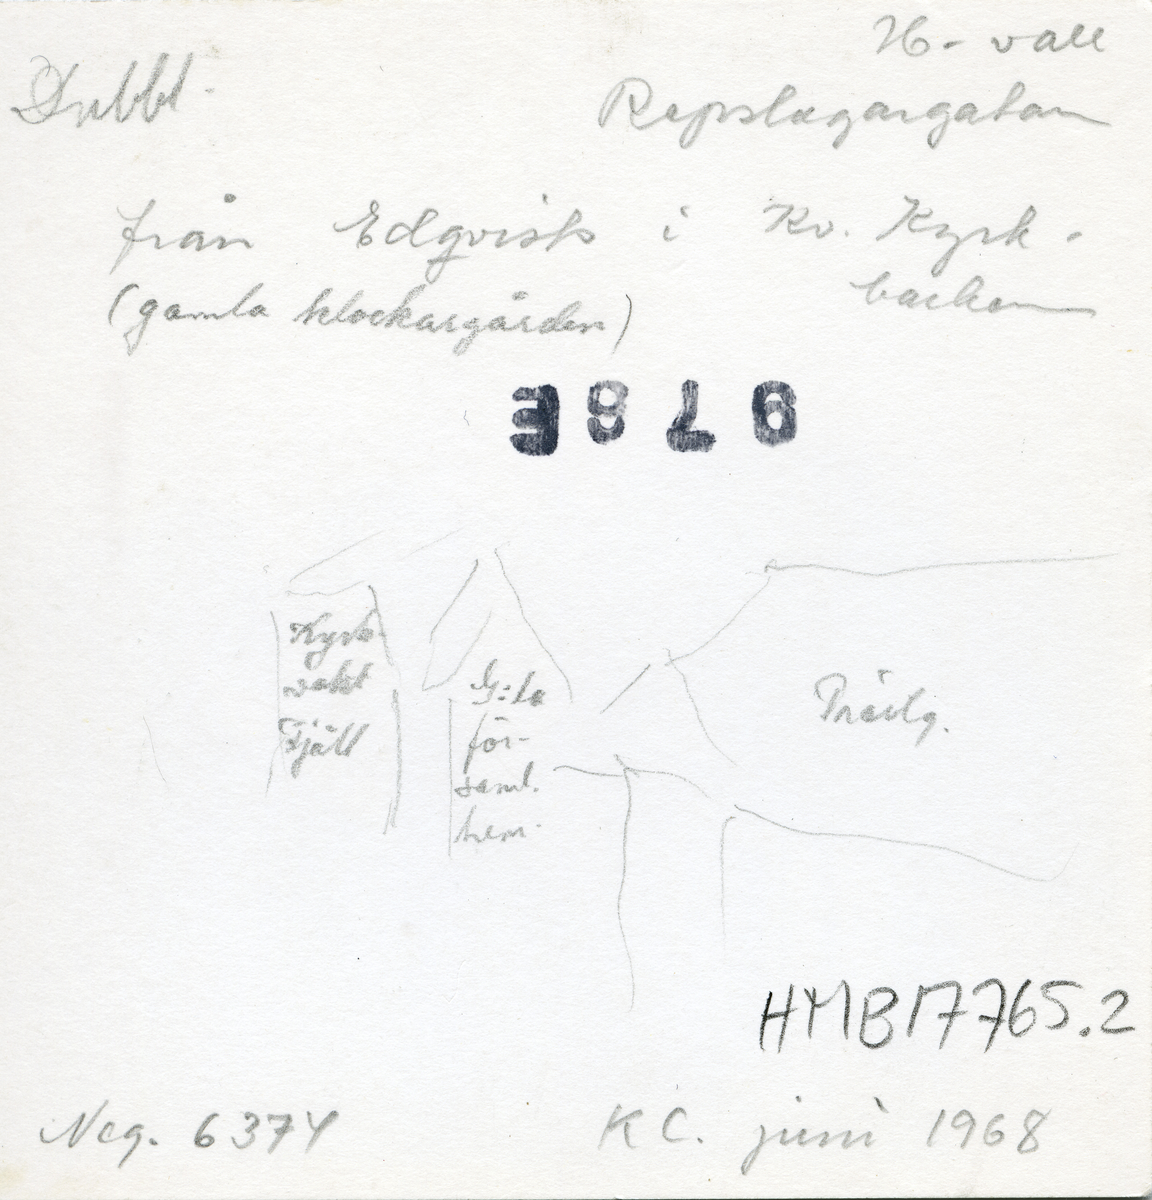 Dubbl.
H-vall
Repslagargatan
från Edqvists i Kv. Kyrk-
backen
(gamla klockargården)
976E
Kyrk-
vakt
Fjäll
G:la
för-
saml.
hem.
Prästg.
HMB17765.2
Neg. 6374
KC. juni 1968